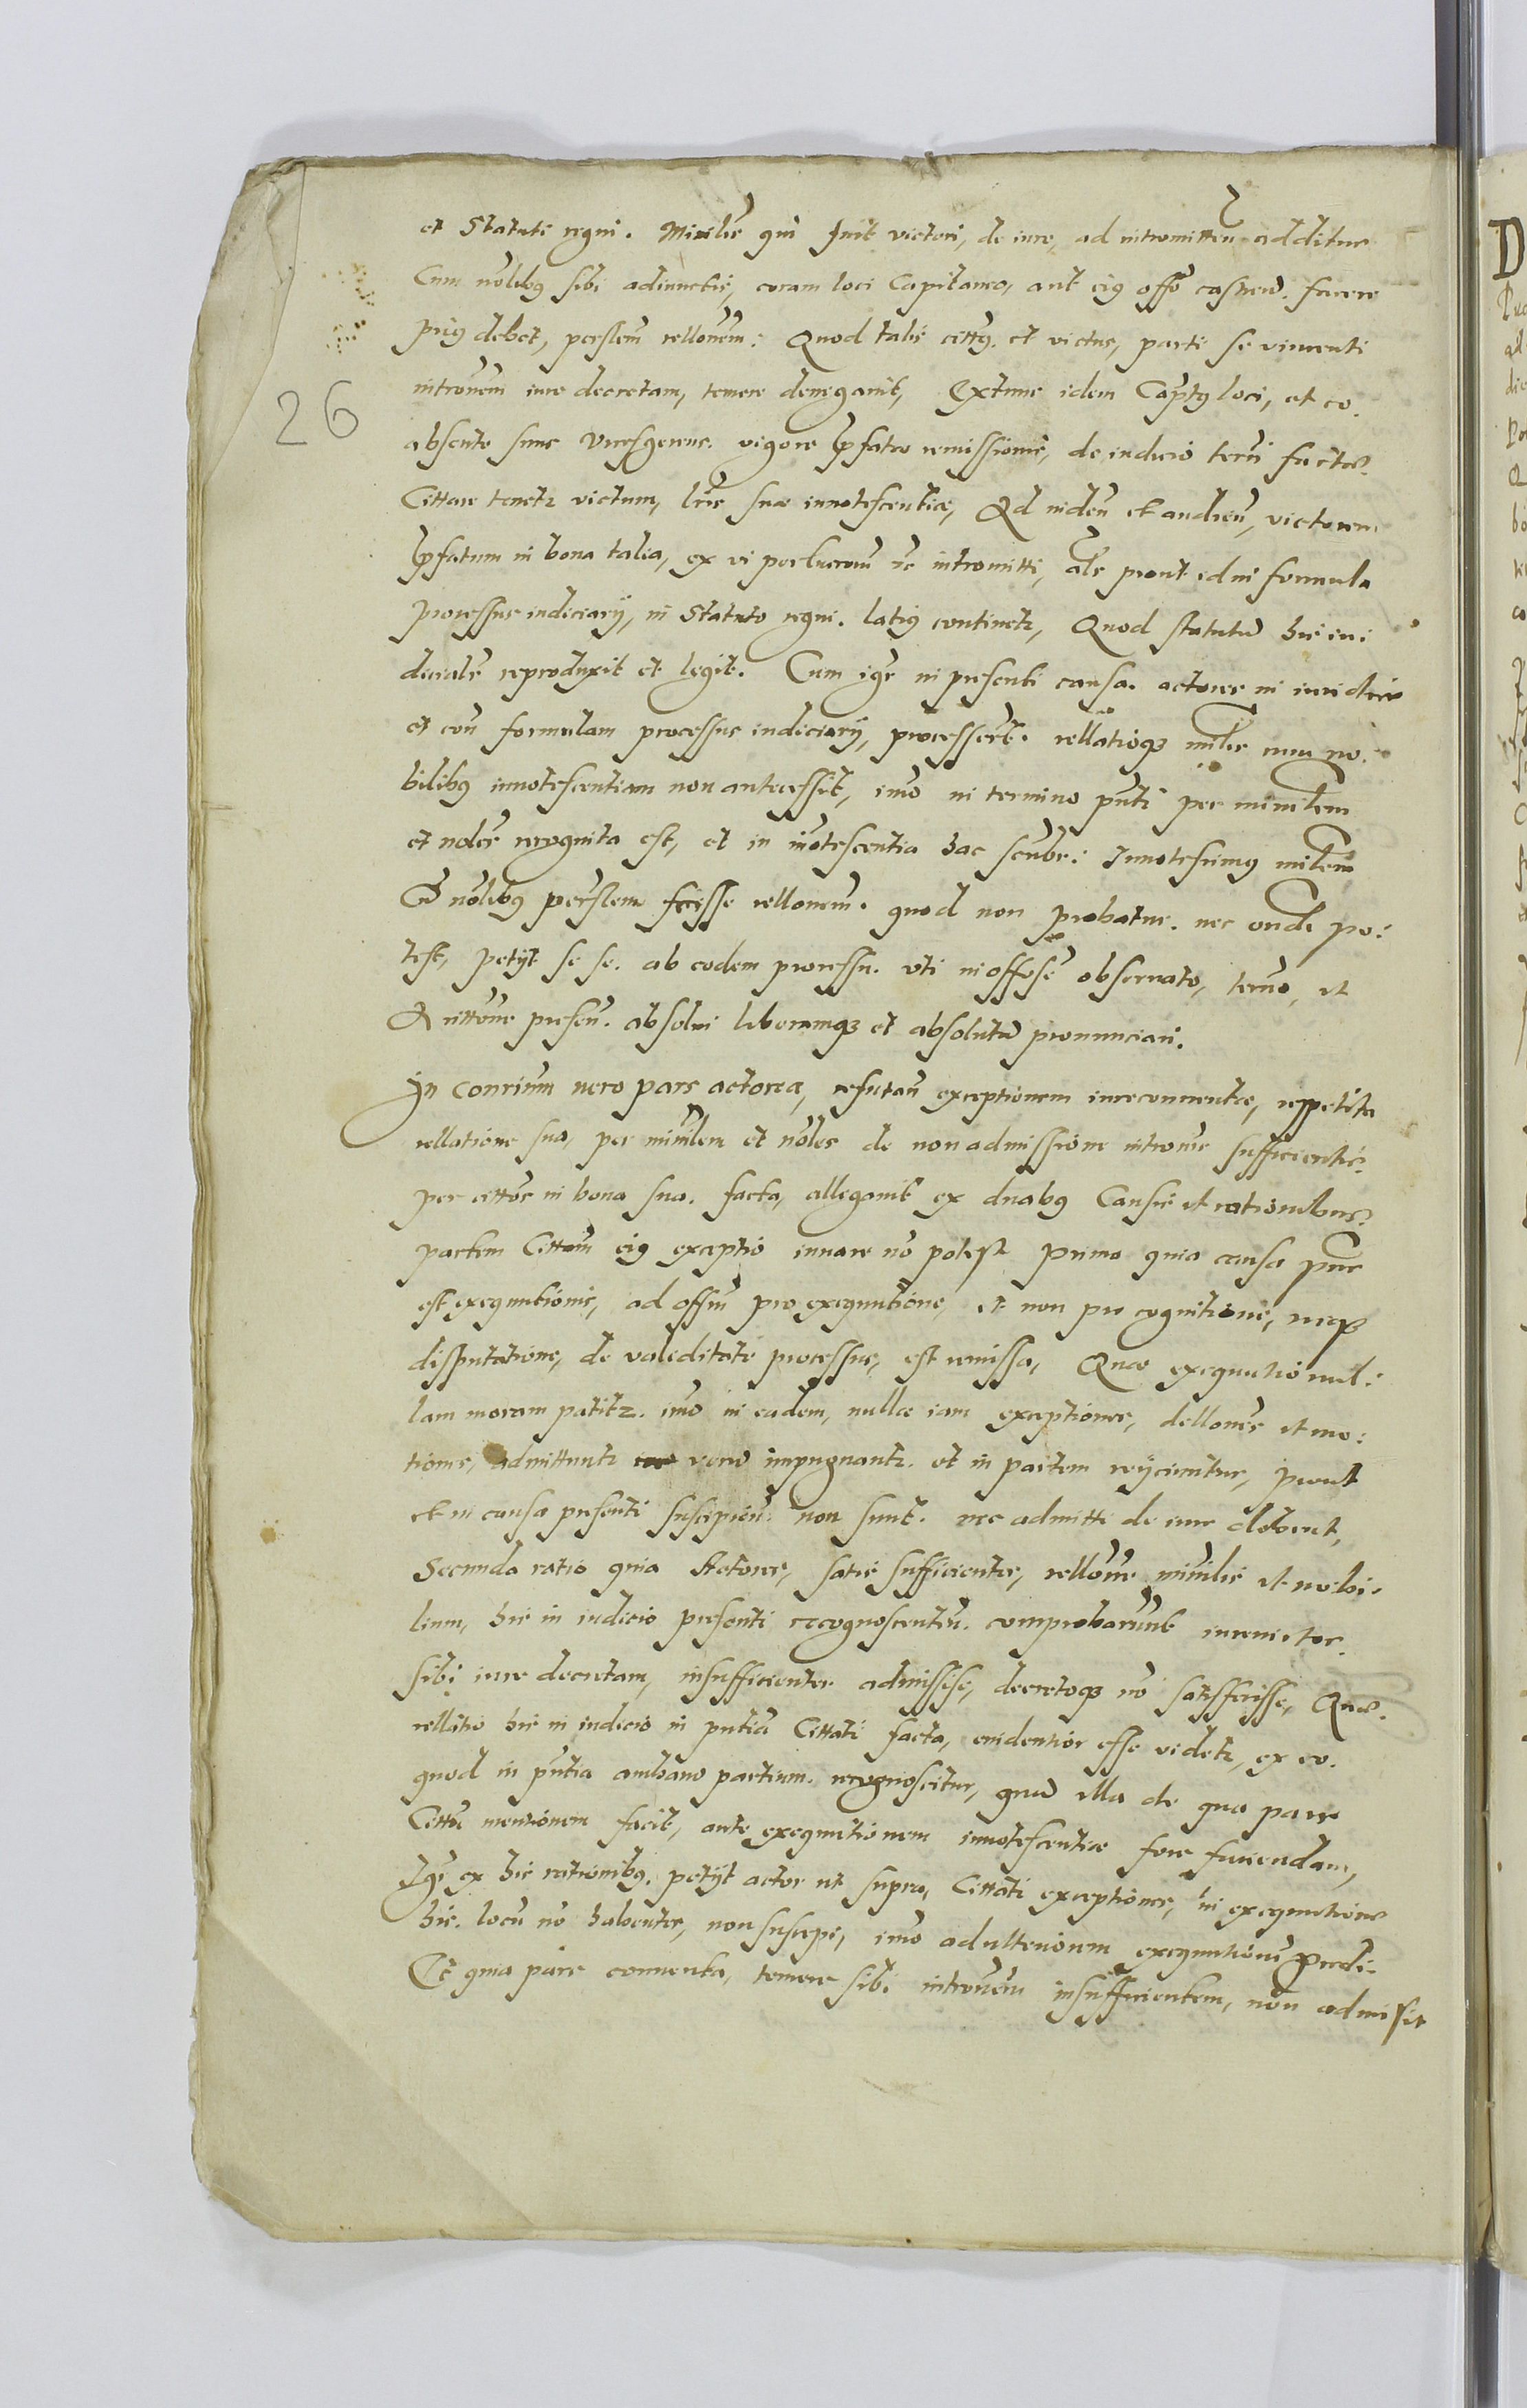 et Statuti regni. Minlis qui fuit victori, de iure, ad intromitten additus
Cum nolibus sibi adiunctis, coram loci Capitaneo, aut eius offo castren. facere
prius debet, perslem rellonem: Quod talis cittus. et victus, parti se vincenti
intronem iure decretam, temere denegavit, Extunc idem Captus loci, et eo.
absente suus Vicesgerens. vigore pfatae remissionis, de iudicio terri factae.
Cittare tenetr victum, lris suae innotescentiae, Ad viden et audien, victorem
pfatum in bona talia, ex vi perlucrorum etc intromitti, als prout id in formula
processus iudiciarij, in Statuto regni. latius continetr, Quod statutu hic iu:
dicialr reproduxit et legit. Cum igr in presenti causa. actores in
et con formulam processus iudiciarij, processert. rellatioq minlis cum no.
bilibus innotescentiam non antecessit, imo in termino pnti per minilem
et nobles recognita est, et in inotescentia hac scribr: Innotescimus minlem
Cu nolibus perslem fecisse rellonem. quod non probatur. nec ondi po:
test, petijt se se. ab eodem processu. uti in offose observato, termo, et
Cittone presen. absolvi liberumq et absolutu pronunciari.
In conrium vero pars actorea, refutan exceptionem iureconventae, reppetita
rellatione sua, per minilem et nobles de non admissione intronis sufficientis.
per cittos in bona sua. facta, allegavit ex duabus Causis et rationibus.
partem Cittam eius exceptio iuvare no potest Primo quia causa pns
est exequutionis, ad offiu pro exequutione, et non pro cognitione, neq
disputatione, de valeditate processus, est remissa, Quae exequutio nul:
lam moram patitr. imo in eadem, nullae iam exceptiones, dellones et mo:
tiones, admittuntr vero impugnantr. et in partem reijciuntur, prout
et in causa presenti suscipien. non sunt. nec admitti de iure debent,
Secunda ratio quia Actores, satis sufficienter, rellone minilis et nobi.
lium, hic in iudicio presenti recognoscentiu. comprobarunt
sibi iure decretam, insufficienter admissise, decretoq no satisfecisse, Quae.
rellatio hic in iudicio in pntia Cittati facta, evidentior esse videtr, ex eo.
quod in pntia ambaru partium. recognoscitur, qua illa de qua pars
Citta mentionem facit, ante exequutionem innotescentiae fore faciendam,
Igr ex his rationibus. petijt actor ut supra, Cittati exceptiones, in exequutione
hic. locu no habentes, non suscepi, imo ad ulteriorem exequutionis procedi.
Et quia pars conventa, temere sibi intronem insufficientem, non admisit
26